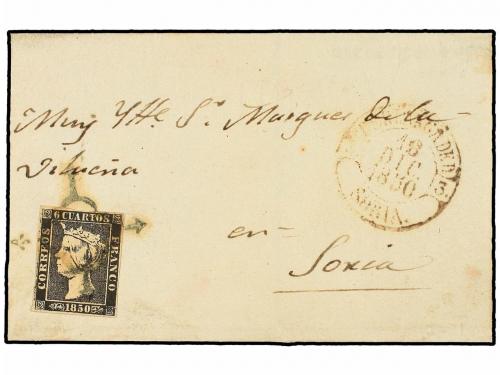 Muy Ytte. Sr. Marques de la
Vilueña
en
Soria
18
DIC
1850
SORIA.
6 CUARTOS
CORREOS
FRANCO
1850